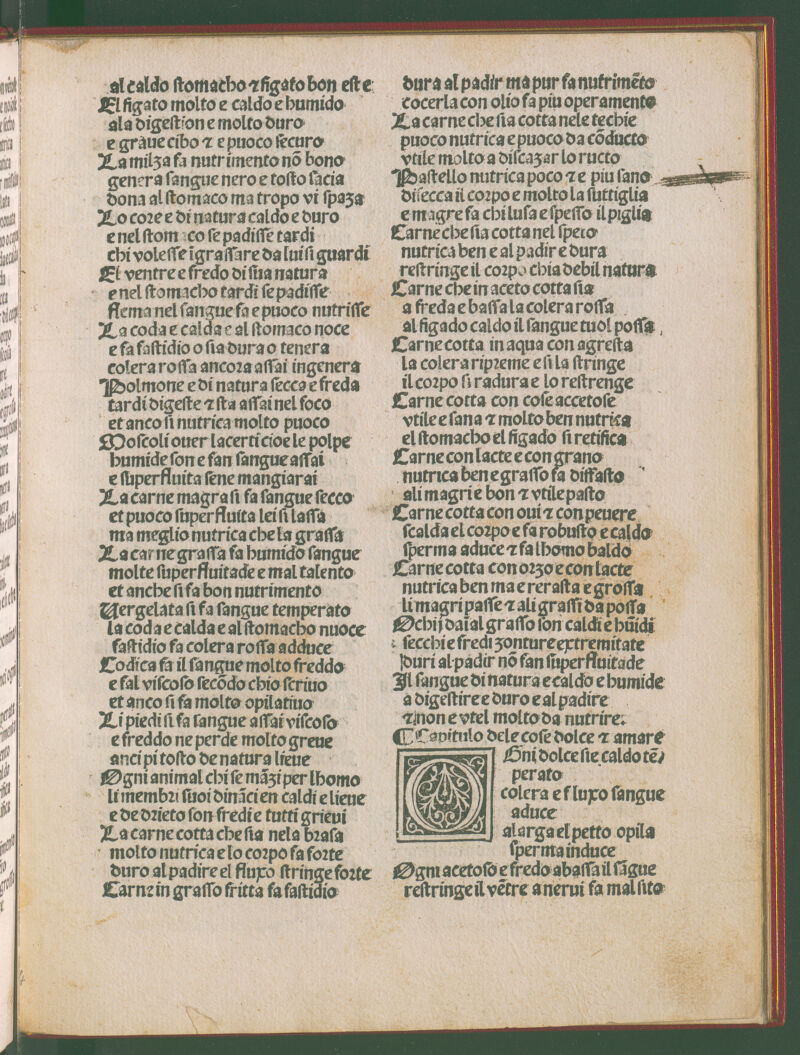 al caldo ſtomacho ⁊ figato bon eſt e
El figato molto e caldo e humido
ala digeſtion e molto duro
e graue cibo ⁊ e puoco ſecuro
La milza fa nutrimento nõ bono
genera ſangue nero e toſto facia
dona al ſtomaco ma tropo vi ſpaza
Lo core e di natura caldo e duro
e nel ſtomaco ſe padiſſe tardi
chi voleſſe ĩgraſſare da lui ſi guardi
El ventre e fredo di ſua natura
e nel ſtomacho tardi ſe padiſſe
flema nel ſangue fa e puoco nutriſſe
La coda e calda e al ſtomaco noce
e fa faſtidio o ſia dura o tenera
colera roſſa ancora aſſai ingenera
Polmone e di natura ſecca e freda
tardi digeſte ⁊ ſta aſſai nel foco
et anco ſi nutrica molto puoco
Moſcoli ouer lacerti cioe le polpe
humide ſon e fan ſangue aſſai
e ſuperfluita ſene mangiarai
La carne magra ſi fa ſangue ſecco
et puoco ſuperfluita lei ſi laſſa
ma meglio nutrica che la graſſa
La carne graſſa fa humido ſangue
molte ſuperfluitade e mal talento
et anche ſi fa bon nutrimento
Vergelata ſi fa ſangue temperato
la coda e calda e al ſtomacho nuoce
faſtidio fa colera roſſa adduce
Codica fa il ſangue molto freddo
e fal viſcoſo ſecõdo chio ſcriuo
et anco ſi fa molto opilatiuo
Li piedi ſi fa ſangue aſſai viſcoſo
e freddo ne perde molto greue
anci pi toſto de natura lieue
Ogni animal chi ſe mãzi per lhomo
li membri ſuoi dinãci en caldi e lieue
e de drieto ſon fredi e tutti grieui
La carne cotta che ſia nela braſa
molto nutrica e lo corpo fa forte
duro al padire el fluxo ſtringe forte
Carne in graſſo fritta fa faſtidio
dura al padir ma pur fa nutrimẽto
cocerla con olio fa piu operamento
La carne che ſia cotta nele techie
puoco nutrica e puoco da cõducto
vtile molto a diſcazar lo ructo
Paſtello nutrica poco ⁊ e piu ſano
diſecca il corpo e molto la ſuttiglia
e magre fa chi luſa e ſpeſſo il piglia
Carne che ſia cotta nel ſpeto
nutrica ben e al padir e dura
reſtringe il corpo chia debil natura
Carne che in aceto cotta ſia
a freda e baſſa la colera roſſa
al figado caldo il ſangue tuol poſſa
Carne cotta in aqua con agreſta
la colera ripreme e ſi la ſtringe
il corpo ſi radura e lo reſtrenge
Carne cotta con coſe accetoſe
vtile e ſana ⁊ molto ben nutrica
el ſtomacho el figado ſi retifica
Carne con lacte e con grano
nutrica ben e graſſo fa diffaſto
ali magri e bon ⁊ vtile paſto
Carne cotta con oui ⁊ con peuere
ſcalda el corpo e fa robuſto e caldo
ſperma aduce ⁊ fa lhomo baldo
Carne cotta con orzo e con lacte
nutrica ben ma e reraſta e groſſa
li magri paſſe ⁊ ali graſſi da poſſa
Ochij daĩal graſſo ſon caldi e hũidi
ſecchi e fredi zonture extremitate
duri al padir nõ fan ſuperfluitade
Il ſangue di natura e caldo e humide
a digeſtire e duro e al padire
⁊ non e vtel molto da nutrire.
¶ Capitulo dele coſe dolce ⁊ amare
Oni dolce ſie caldo tẽ/
perato
colera e fluxo ſangue
aduce
alarga el petto opila
ſperma induce
Ogni acetoſo e fredo abaſſa il ſãgue
reſtringe il vẽtre a nerui fa mal ſito